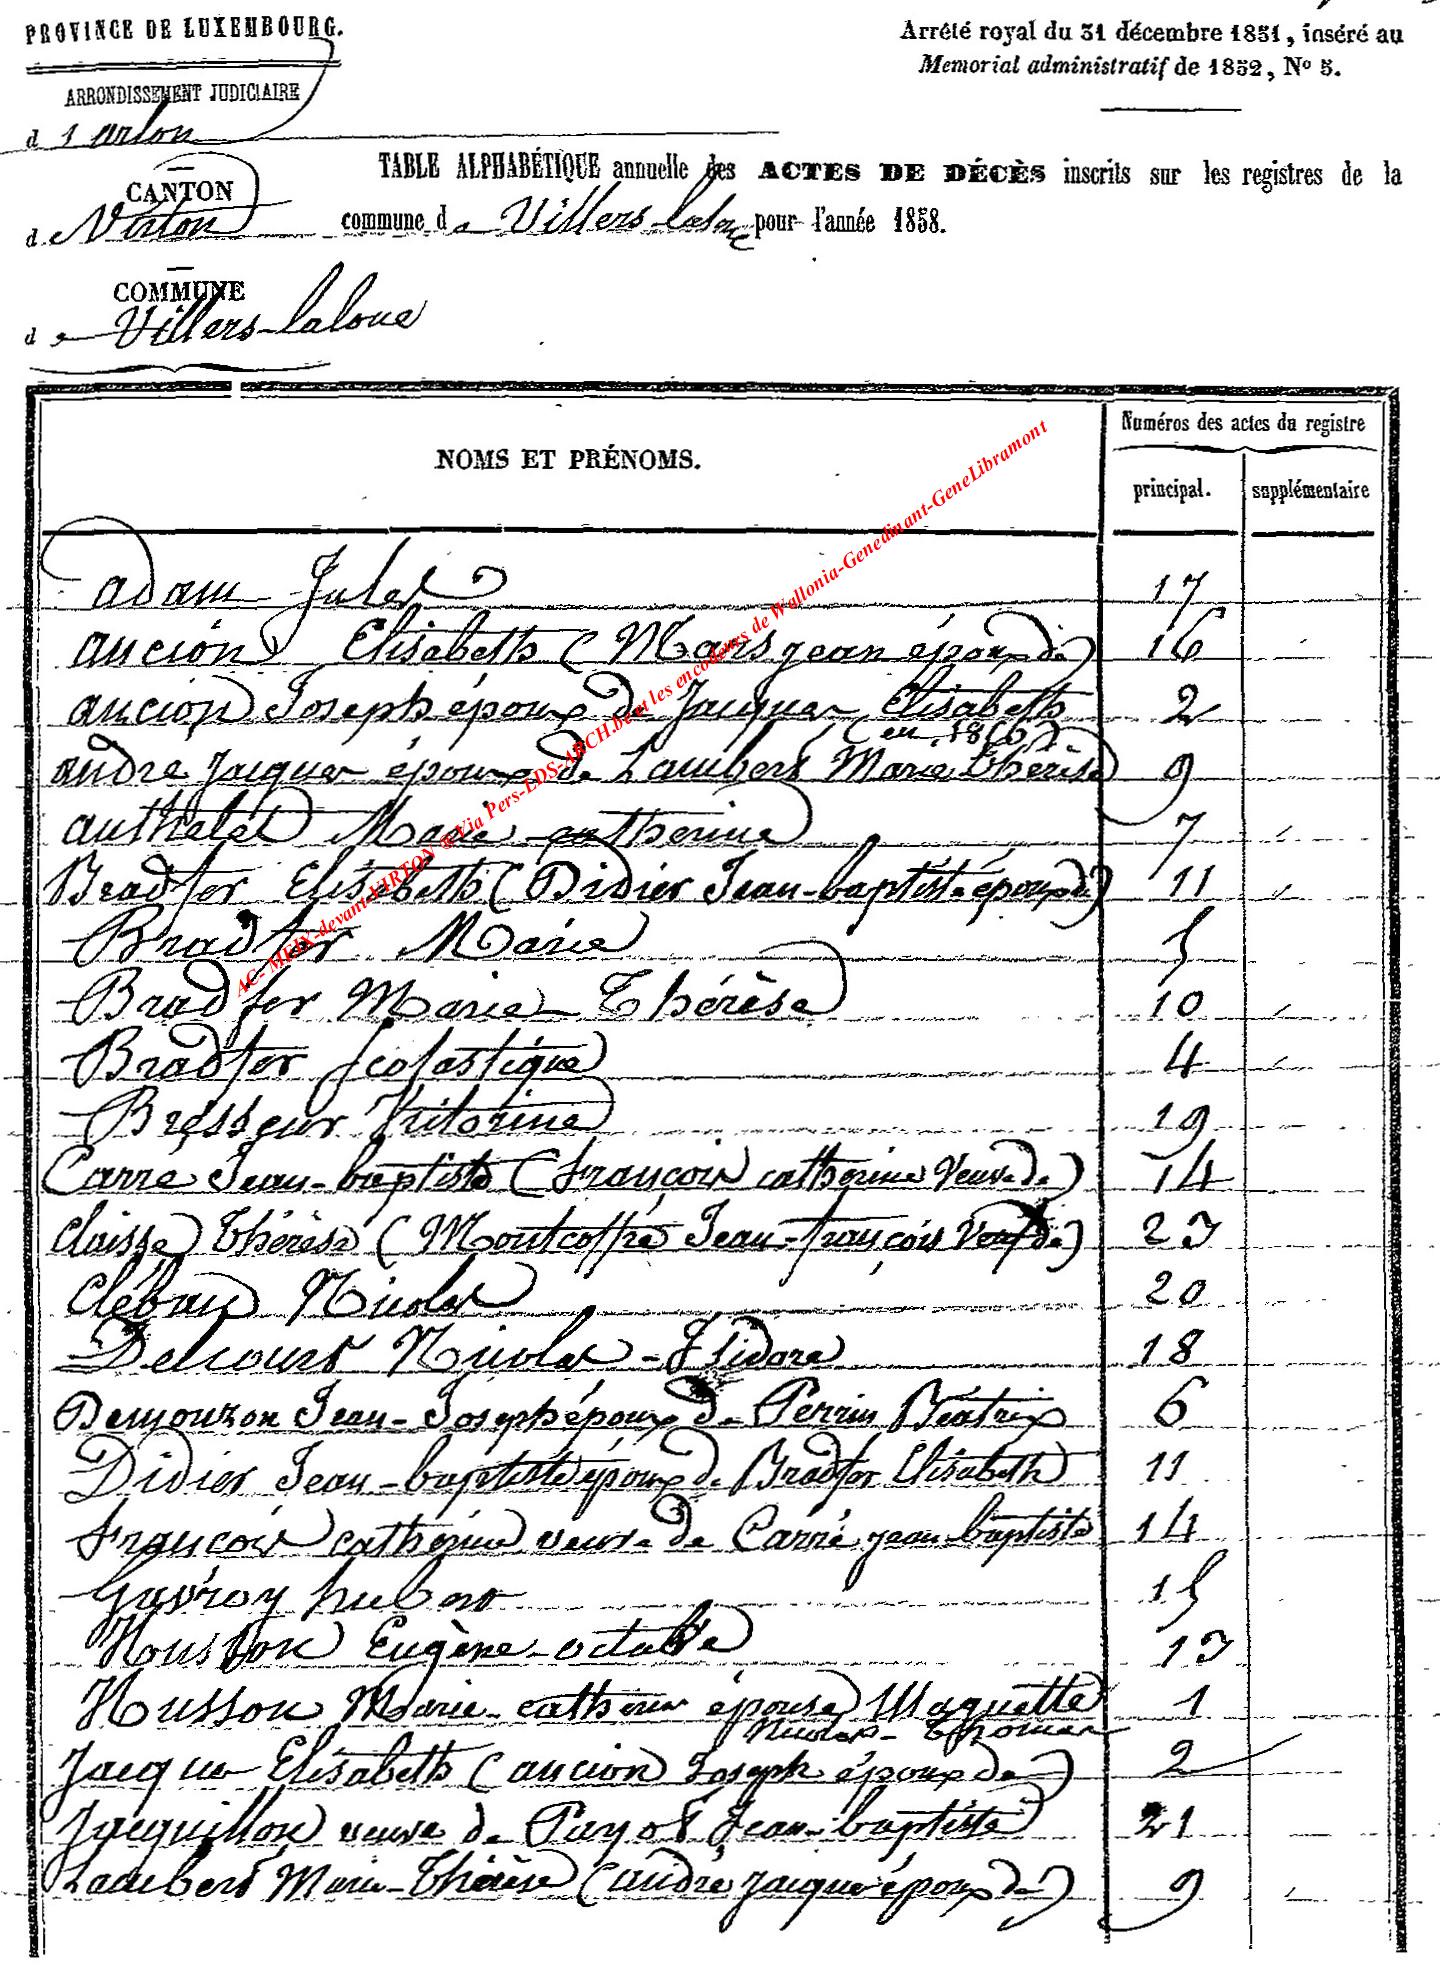 PROVINCE DE LUXEMBOURG.
Arrété royal du 31 décembre 1851, inséré au
Memorial administratif de 1852, No 5.
ARRONDISSEMENT JUDICIAIRE
d'arlon
CANTON
de Virton
TABLE ALPHABÉTIQUE annuelle des ACTES DE DÉCÈS inscrits sur les registres de la
commune de Villers-laloue pour l'année 1858.
COMMUNE
de Villers-laloue
NOMS ET PRÉNOMS.
Numéros des actes du registre
principal. supplémentaire
adam Jules 17
aucion Elisabeth (Mars jean époux de) 16
aucion Joseph époux de Jacques Elisabeth 2
(en 1816)
andre Jacques époux de Lambert Marie thérèse 9
authelet Marie catherine 7
Bradfer Elisabeth (Didier Jean-baptiste époux de) 11
Bradfer Marie 5
Bradfer Marie Thérèse 10
Bradfer Scolastique 4
Bresseur Victorine 19
Carré Jean-baptiste (françois catherine Veuve de) 14
Claisse Thérèse (Montcoffré Jean-françois Veuf de) 23
Clébau Nicolas 20
Delcourt Nicolas-Isidore 18
Demouzon Jean-Joseph époux de Perrin Béatrix 6
Didier Jean-baptiste époux de Bradfer Elisabeth 11
françois catherine veuve de Carré jean-baptiste 14
Gavroy hubert 15
Husson Eugène-octave 13
Husson Marie-catherine épouse Maquette 1
Nicolas-Thomas
Jacques Elisabeth (aucion Joseph époux de) 2
Jacquillon veuve de Payot Jean-baptiste 21
Lambert Marie-Thérèse (andré jacques époux de) 9
AC- MEIX-devant-VIRTON @Via Pers-EDS-ARCH.be et les encodeurs de Wallonia-Genedinant-GeneLibramont